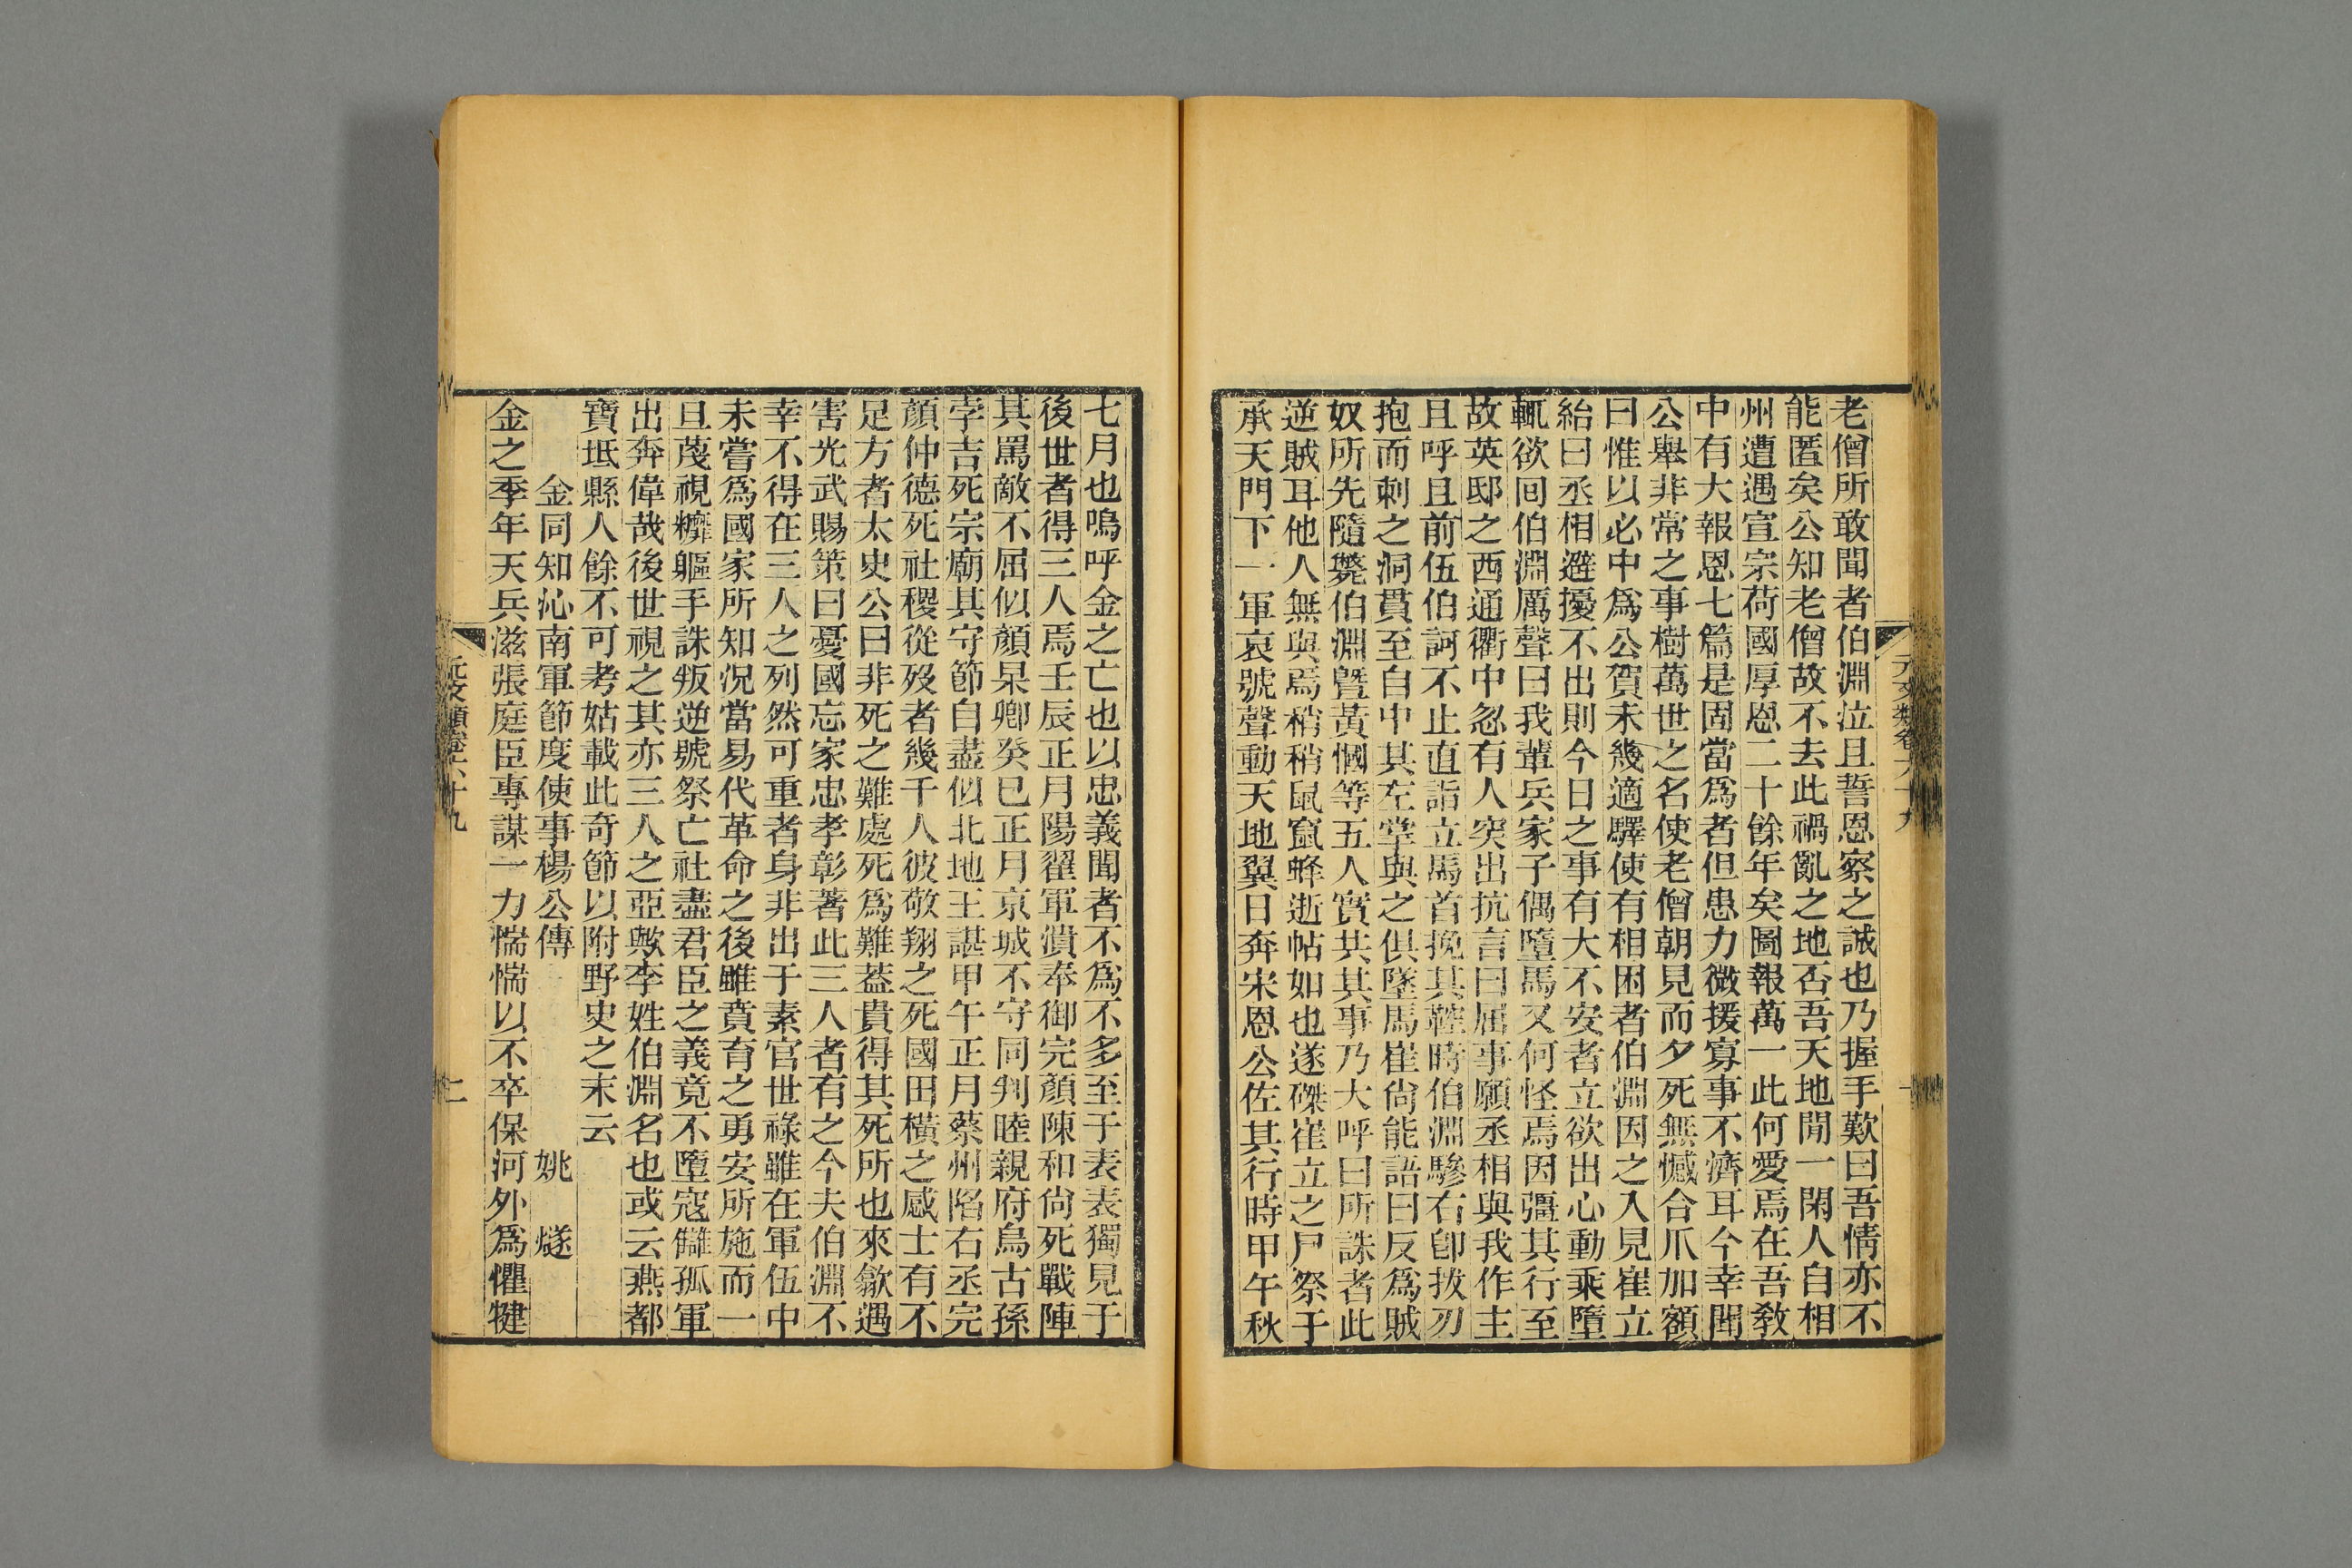 老僧所敢聞者伯淵泣且誓恩察之誠也乃握手歎曰吾情亦不
能匿矣公知老僧故不去此禍亂之地否吾天地閒一閑人自相
州遭遇宣宗荷國厚恩二十餘年矣圖報萬一此何愛焉在吾敎
中有大報恩七篇是固當爲者但患力微援寡事不濟耳今幸聞
公舉非常之事樹萬世之名使老僧朝見而夕死無憾合爪加額
曰惟以必中爲公賀未幾適驛使有相困者伯淵因之入見崔立
紿曰丞相避擾不出則今日之事有大不安者立欲出心動乘墮
輒欲回伯淵厲聲曰我輩兵家子偶墮馬又何怪焉因彊其行至
故英邸之西通衢中忽有人突出抗言曰屈事願丞相與我作主
且呼且前伍伯訶不止直詣立馬首挽其鞚時伯淵驂右卽拔刃
抱而刺之洞貫至自中其左掌與之俱墜馬崔尙能語曰反爲賊
奴所先隨斃伯淵曁黃慖等五人實共其事乃大呼曰所誅者此
逆賊耳他人無與焉稍稍鼠竄蜂逝帖如也遂磔崔立之尸祭于
承天門下一軍哀號聲動天地翼日奔宋恩公佐其行時甲午秋
七月也嗚呼金之亡也以忠義聞者不爲不多至于表表獨見于
後世者得三人焉壬辰正月陽翟軍潰奉御完顏陳和尙死戰陣
其罵敵不屈似顏杲卿癸巳正月京城不守同判睦親府烏古孫
孛吉死宗廟其守節自盡似北地王諶甲午正月蔡州陷右丞完
顏仲德死社稷從歿者幾千人彼敬翔之死國田橫之感士有不
足方者太史公曰非死之難處死爲難葢貴得其死所也來歙遇
害光武賜策曰憂國忘家忠孝彰著此三人者有之今夫伯淵不
幸不得在三人之列然可重者身非出于素官世祿雖在軍伍中
未嘗爲國家所知況當易代革命之後雖賁育之勇安所施而一
旦蔑視糜軀手誅叛逆號祭亡社盡君臣之義竟不墮寇讎孤軍
出奔偉哉後世視之其亦三人之亞歟李姓伯淵名也或云燕都
寶坻縣人餘不可考姑載此奇節以附野史之末云
金同知沁南軍節度使事楊公傳 姚 燧
金之季年天兵滋張庭臣專謀一力惴惴以不卒保河外爲懼犍
元文類卷六十九
二